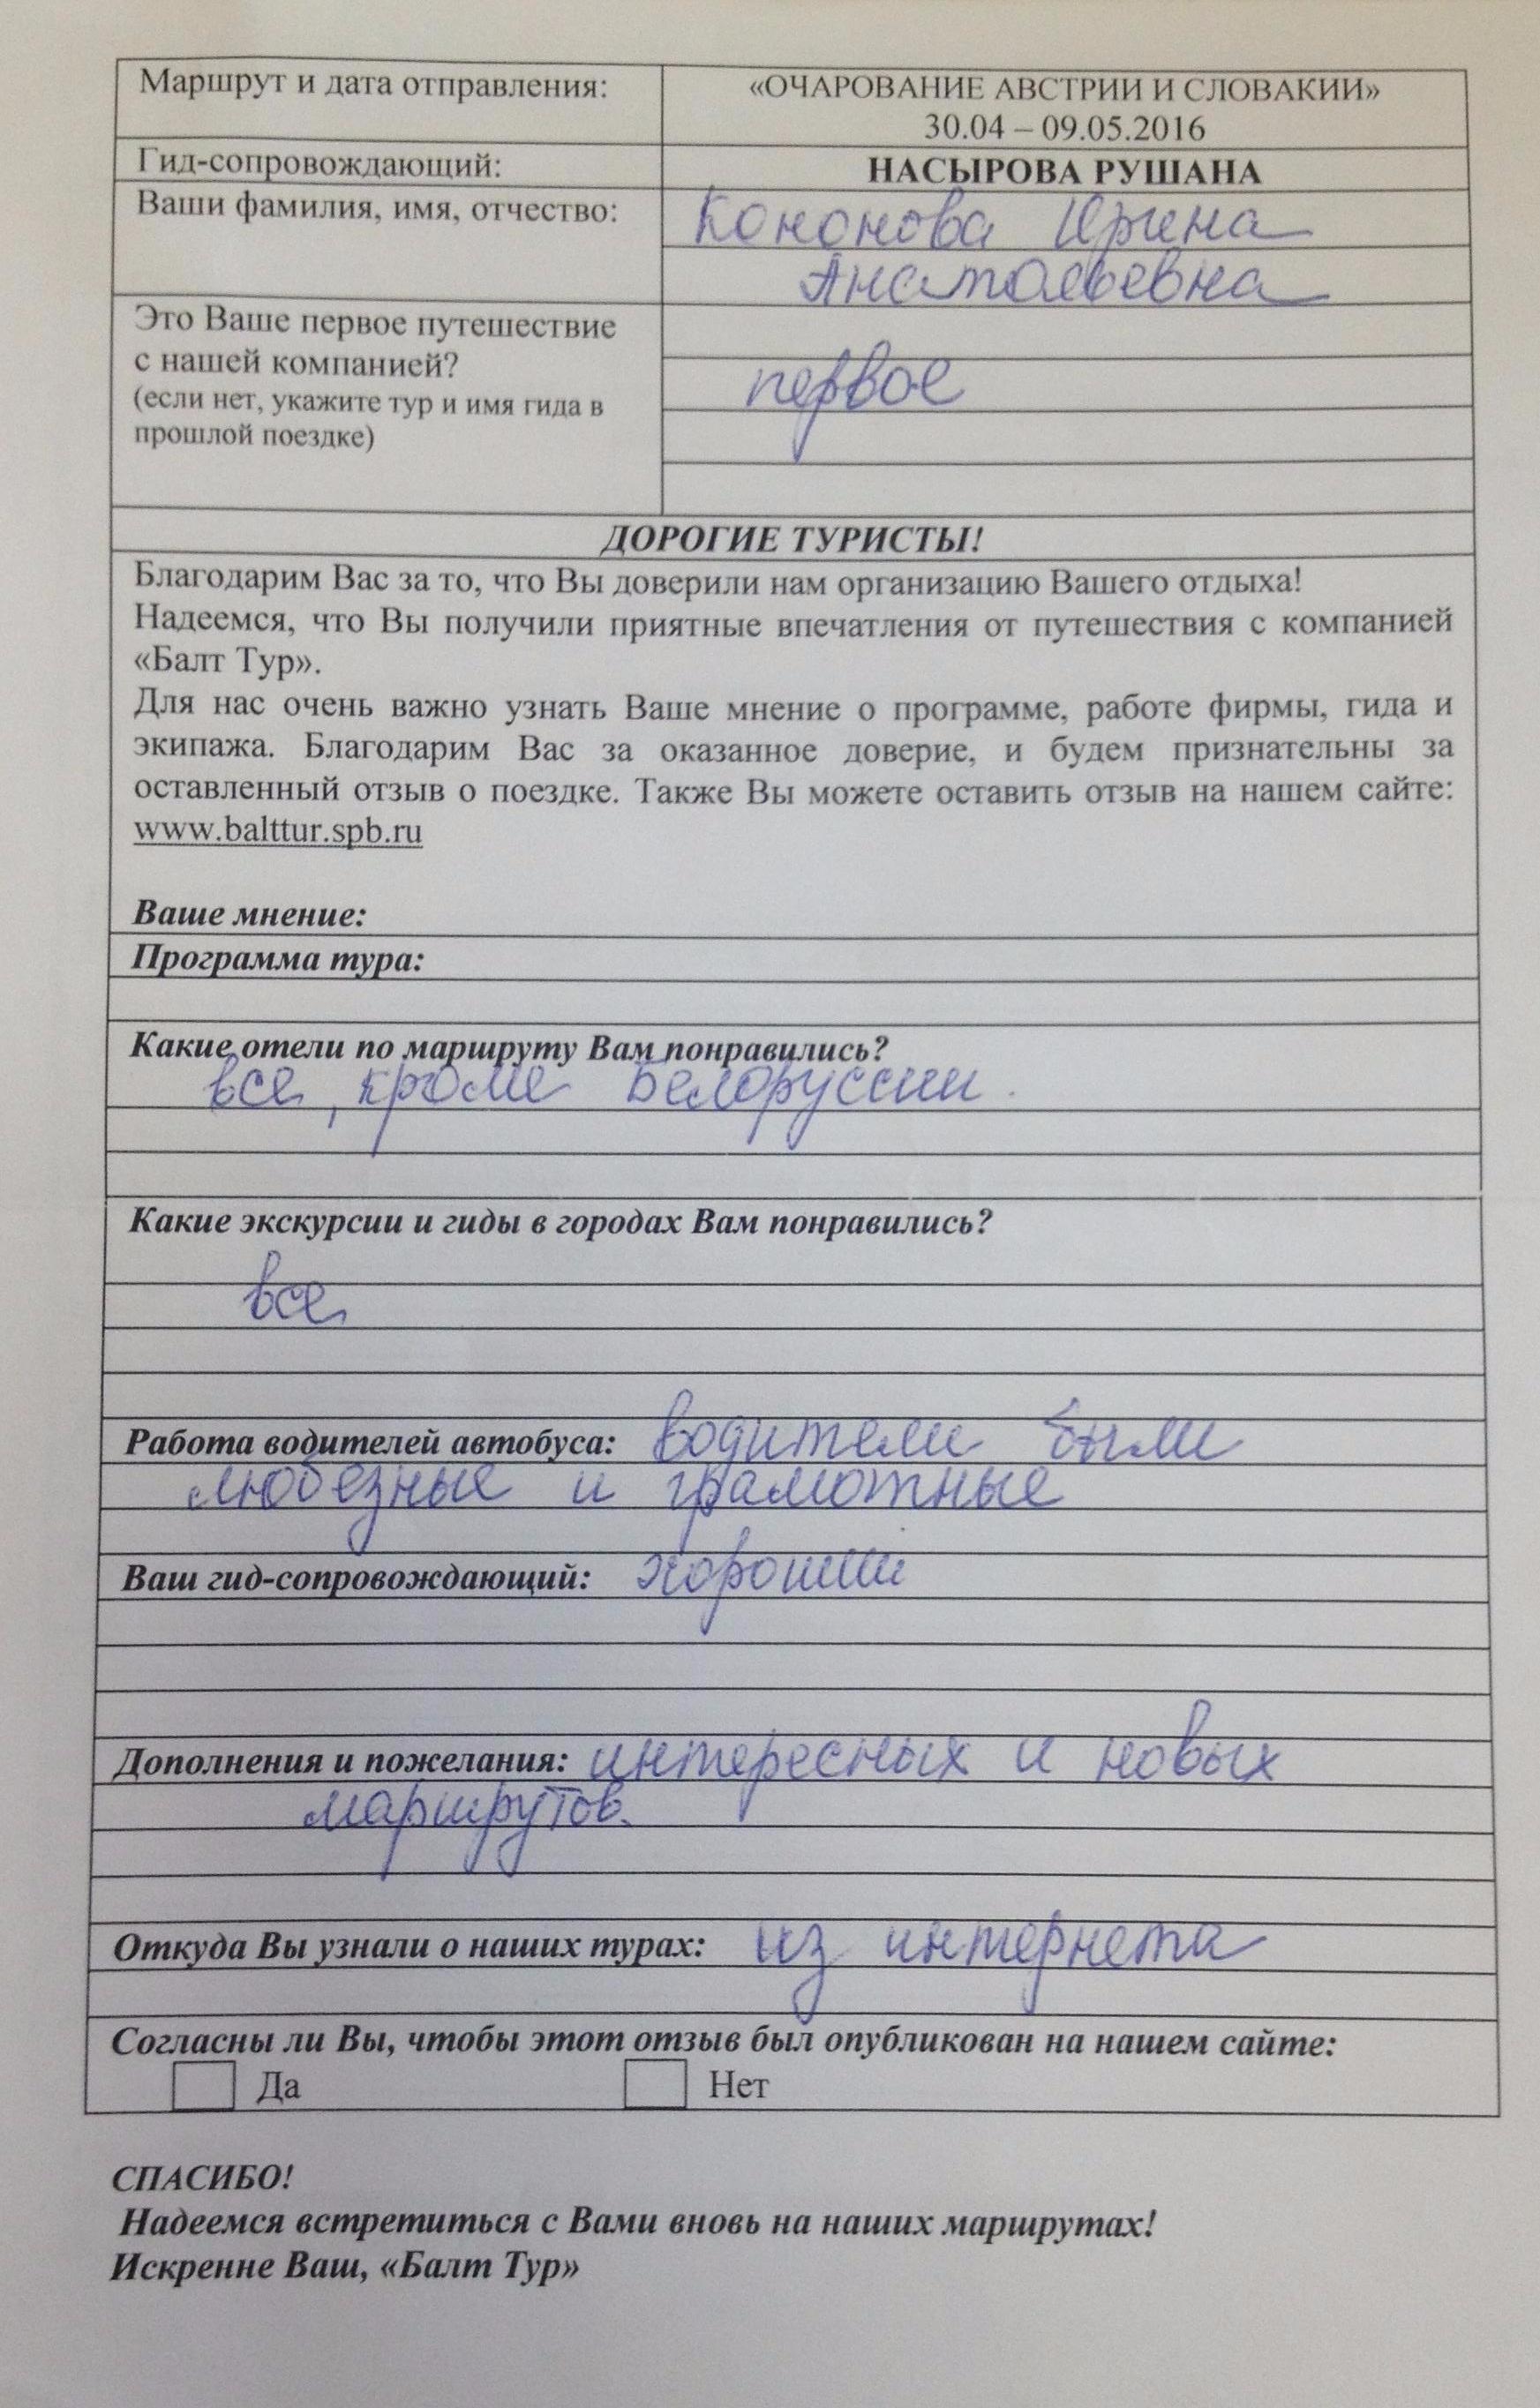 Маршрут и дата отправления:
«ОЧАРОВАНИЕ АВСТРИИ И СЛОВАКИИ»
30.04 – 09.05.2016
Гид-сопровождающий:
НАСЫРОВА РУШАНА
Ваши фамилия, имя, отчество:
Кононова Ирина
Анатольевна
Это Ваше первое путешествие
с нашей компанией?
(если нет, укажите тур и имя гида в
прошлой поездке)
первое
ДОРОГИЕ ТУРИСТЫ!
Благодарим Вас за то, что Вы доверили нам организацию Вашего отдыха!
Надеемся, что Вы получили приятные впечатления от путешествия с компанией
«Балт Тур».
Для нас очень важно узнать Ваше мнение о программе, работе фирмы, гида и
экипажа. Благодарим Вас за оказанное доверие, и будем признательны за
оставленный отзыв о поездке. Также Вы можете оставить отзыв на нашем сайте:
www.balttur.spb.ru
Ваше мнение:
Программа тура:
Какие отели по маршруту Вам понравились?
все, кроме Белоруссии.
Какие экскурсии и гиды в городах Вам понравились?
все
Работа водителей автобуса: водители были
любезные и грамотные
Ваш гид-сопровождающий: хороший
Дополнения и пожелания: интересных и новых
маршрутов.
Откуда Вы узнали о наших турах: из интернета
Согласны ли Вы, чтобы этот отзыв был опубликован на нашем сайте:
Да Нет
СПАСИБО!
Надеемся встретиться с Вами вновь на наших маршрутах!
Искренне Ваш, «Балт Тур»